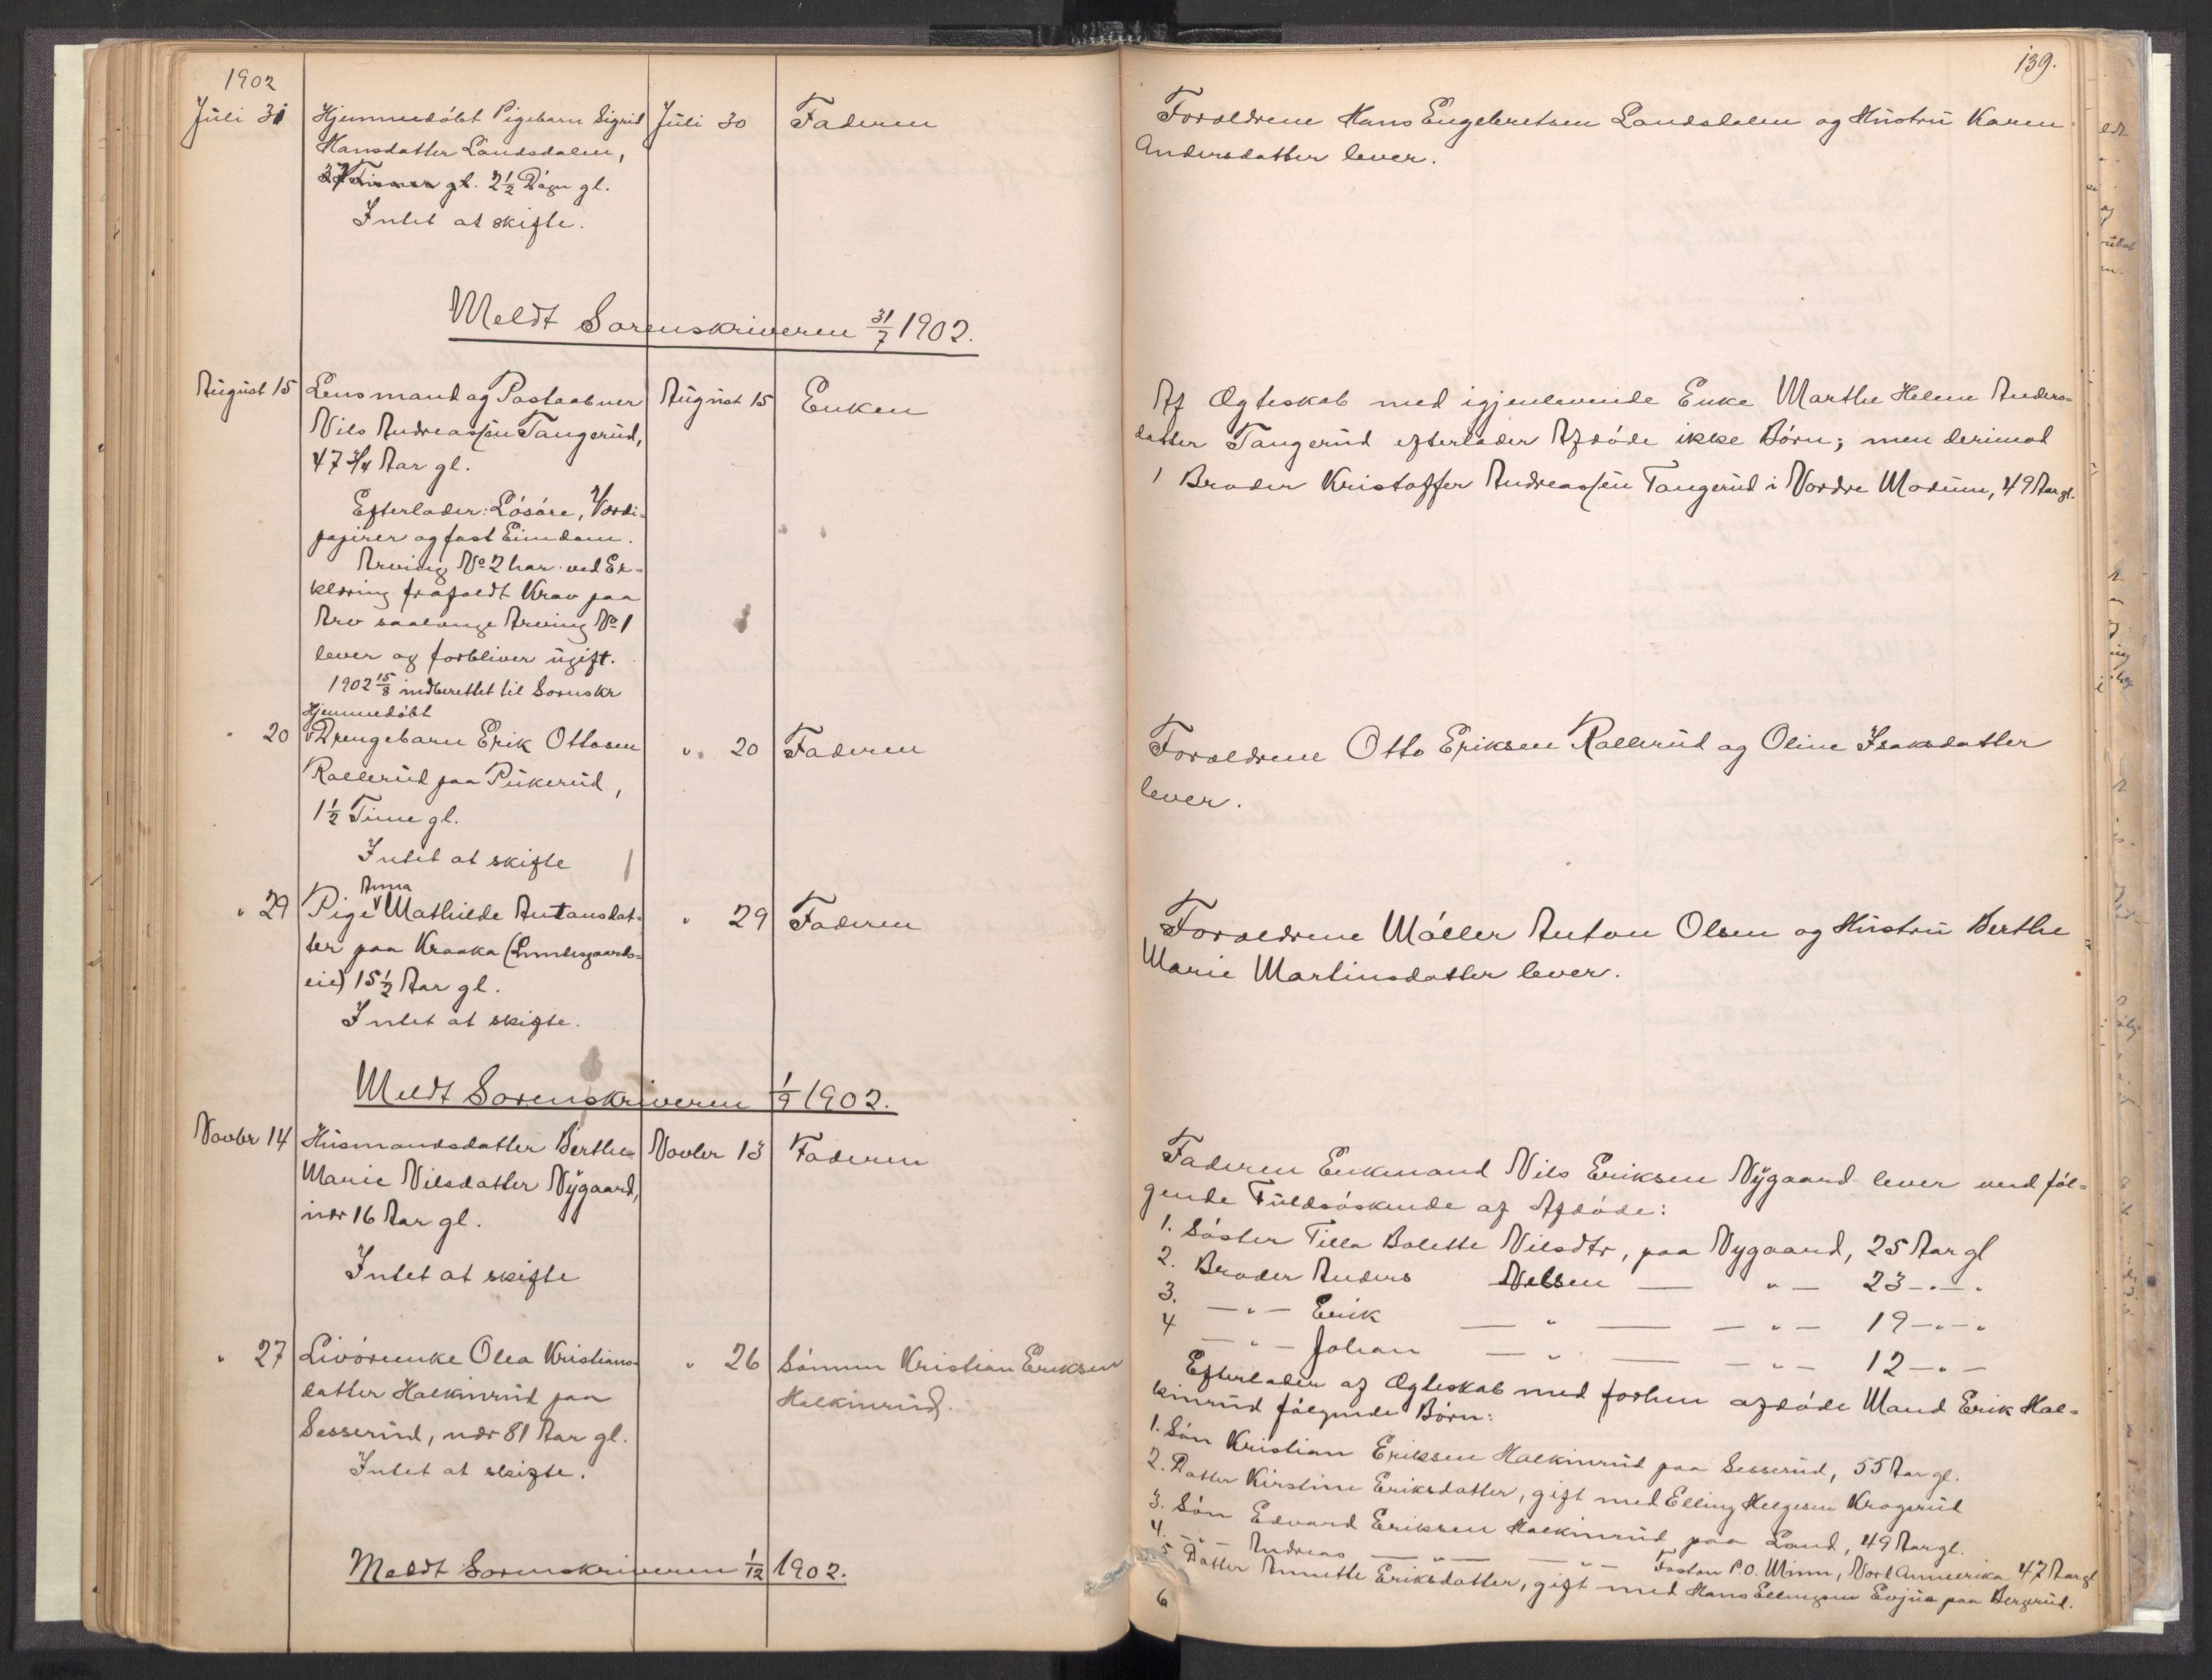 1902
Juli 31 Hjemmedöbt Pigebarn Sigrid Juli 30 Faderen
Hansdatter Landsdalen,
37 Timer gl. 2 1/2 Døgn gl.
Intet at skifte.
Meldt Sorenskriveren 31/7 1902.
August 15 Lensmand og Postaabner August 15 Enken
Nils Andreassen Tangerud,
47 3/4 Aar gl.
Efterlader: Lösöre, Værdi-
papirer og fast Eiendom.
Arving No 2 har ved Er-
klæring frafaldt Krav paa
Arv saalænge Arving No 1
lever og forbliver ugift.
1902 15/8 indberettet til Sorenskr
Hjemmedöbt
" 20 Drengebarn Erik Ottosen " 20 Faderen
Rallerud paa Pukerud,
1 1/2 Time gl.
Intet at skifte
Anna
" 29 Pige Mathilde Antonsdat- " 29 Faderen
ter paa Kraaka (Lundesgaards-
eie) 15 1/2 Aar gl.
Intet at skifte.
Meldt Sorenskriveren 1/9 1902.
Novbr 14 Husmandsdatter Berthe Novbr 13 Faderen
Marie Nilsdatter Nÿgaard,
nær 16 Aar gl.
Intet at skifte
" 27 Livöreenke Olea Kristians- " 26 Sönnen Kristian Eriksen
datter Halkinrud paa Halkinrud.
Sesserud, nær 81 Aar gl.
Intet at skifte.
Meldt Sorenskriveren 1/12 1902.
139.
Forældrene Hans Engebretsen Landsdalen og Hustru Karen
Andersdatter lever.
Af Ægteskab med igjenlevende Enke Marthe Helene Anders-
datter Tangerud efterlader Afdöde ikke Börn; men derimod
1 Broder Kristoffer Andreassen Tangerud i Nordre Modum, 49 Aar gl.
Forældrene Otto Eriksen Rallerud og Oline Isaksdatter
lever.
Forældrene Möller Anton Olsen og Hustru Berthe
Marie Martinsdatter lever.
Faderen Enkemand Nils Eriksen Nÿgaard lever med föl-
gende Fuldsöskende af Afdöde:
1. Söster Tilla Bolette Nilsdtr, paa Nygaard, 25 Aar gl
2. Broder Anders Nilsen — " — 23 - " - "
3. — " — Erik — " — — " — 19 - " - "
4 — " — Johan — " — — " — 12 - " -
Efterlader af Ægteskab med forhen afdöde Mand Erik Hal-
kinrud fölgende Börn:
1. Sön Kristian Eriksen Halkinrud paa Sesserud, 55 Aar gl.
2. Datter Kirstine Eriksdatter, gift med Elling Helgesen Kragerud
3. Sön Edvard Eriksen Halkinrud paa Land, 49 Aar gl.
4. - " - Andreas — " — — " — Foston P.O. Minn, Nord Ammerika 47 Aar gl
5 Datter Annette Eriksdatter, gift med Hans Ellingsen Evjua paa Bergerud.
6